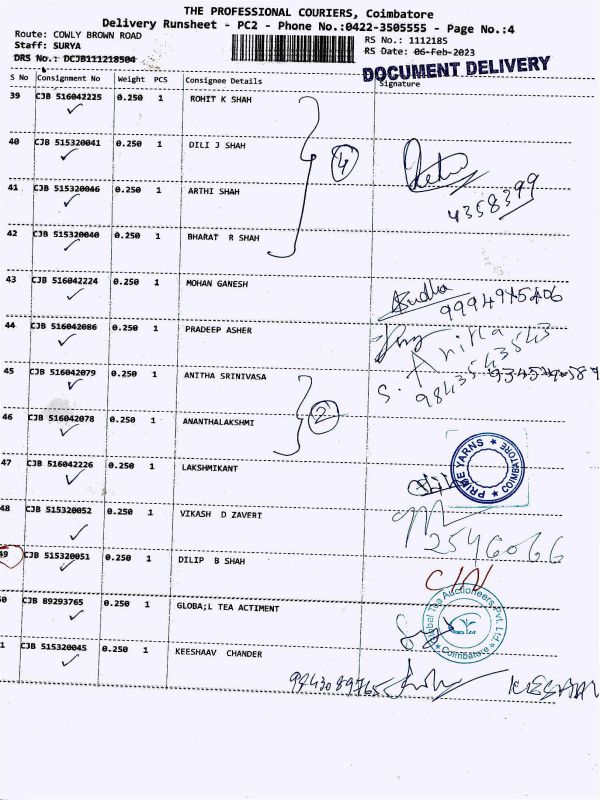 THE PROFESSIONAL COURIERS, Coimbatore
Delivery Runsheet - PC2 - Phone No.:0422-3505555 - Page No.:4
Route: COWLY BROWN ROAD
Staff: SURYA
DRS No.: DCJB111218504
RS No.: 1112185
RS Date: 06-Feb-2023
DOCUMENT DELIVERY
S No Consignment No Weight PCS Consignee Details Signature
39 CJB 516042225 0.250 1 ROHIT K SHAH
40 CJB 515320041 0.250 1 DILI J SHAH
4
41 CJB 515320046 0.250 1 ARTHI SHAH
4358399
42 CJB 515320040 0.250 1 BHARAT R SHAH
43 CJB 516042224 0.250 1 MOHAN GANESH
Sudha
44 CJB 516042086 0.250 1 PRADEEP ASHER
S. Anitha
9843543543
45 CJB 516042079 0.250 1 ANITHA SRINIVASA
2
46 CJB 516042078 0.250 1 ANANTHALAKSHMI
47 CJB 516042226 0.250 1 LAKSHMIKANT
PRIME YARNS ★ COIMBATORE ★
48 CJB 515320052 0.250 1 VIKASH D ZAVERI
2546066
49 CJB 515320051 0.250 1 DILIP B SHAH
0 CJB 89293765 0.250 1 GLOBA;L TEA ACTIMENT
Global Tea Auctioneers Pvt. Ltd
★ Coimbatore ★
1 CJB 515320045 0.250 1 KEESHAAV CHANDER
9943089765